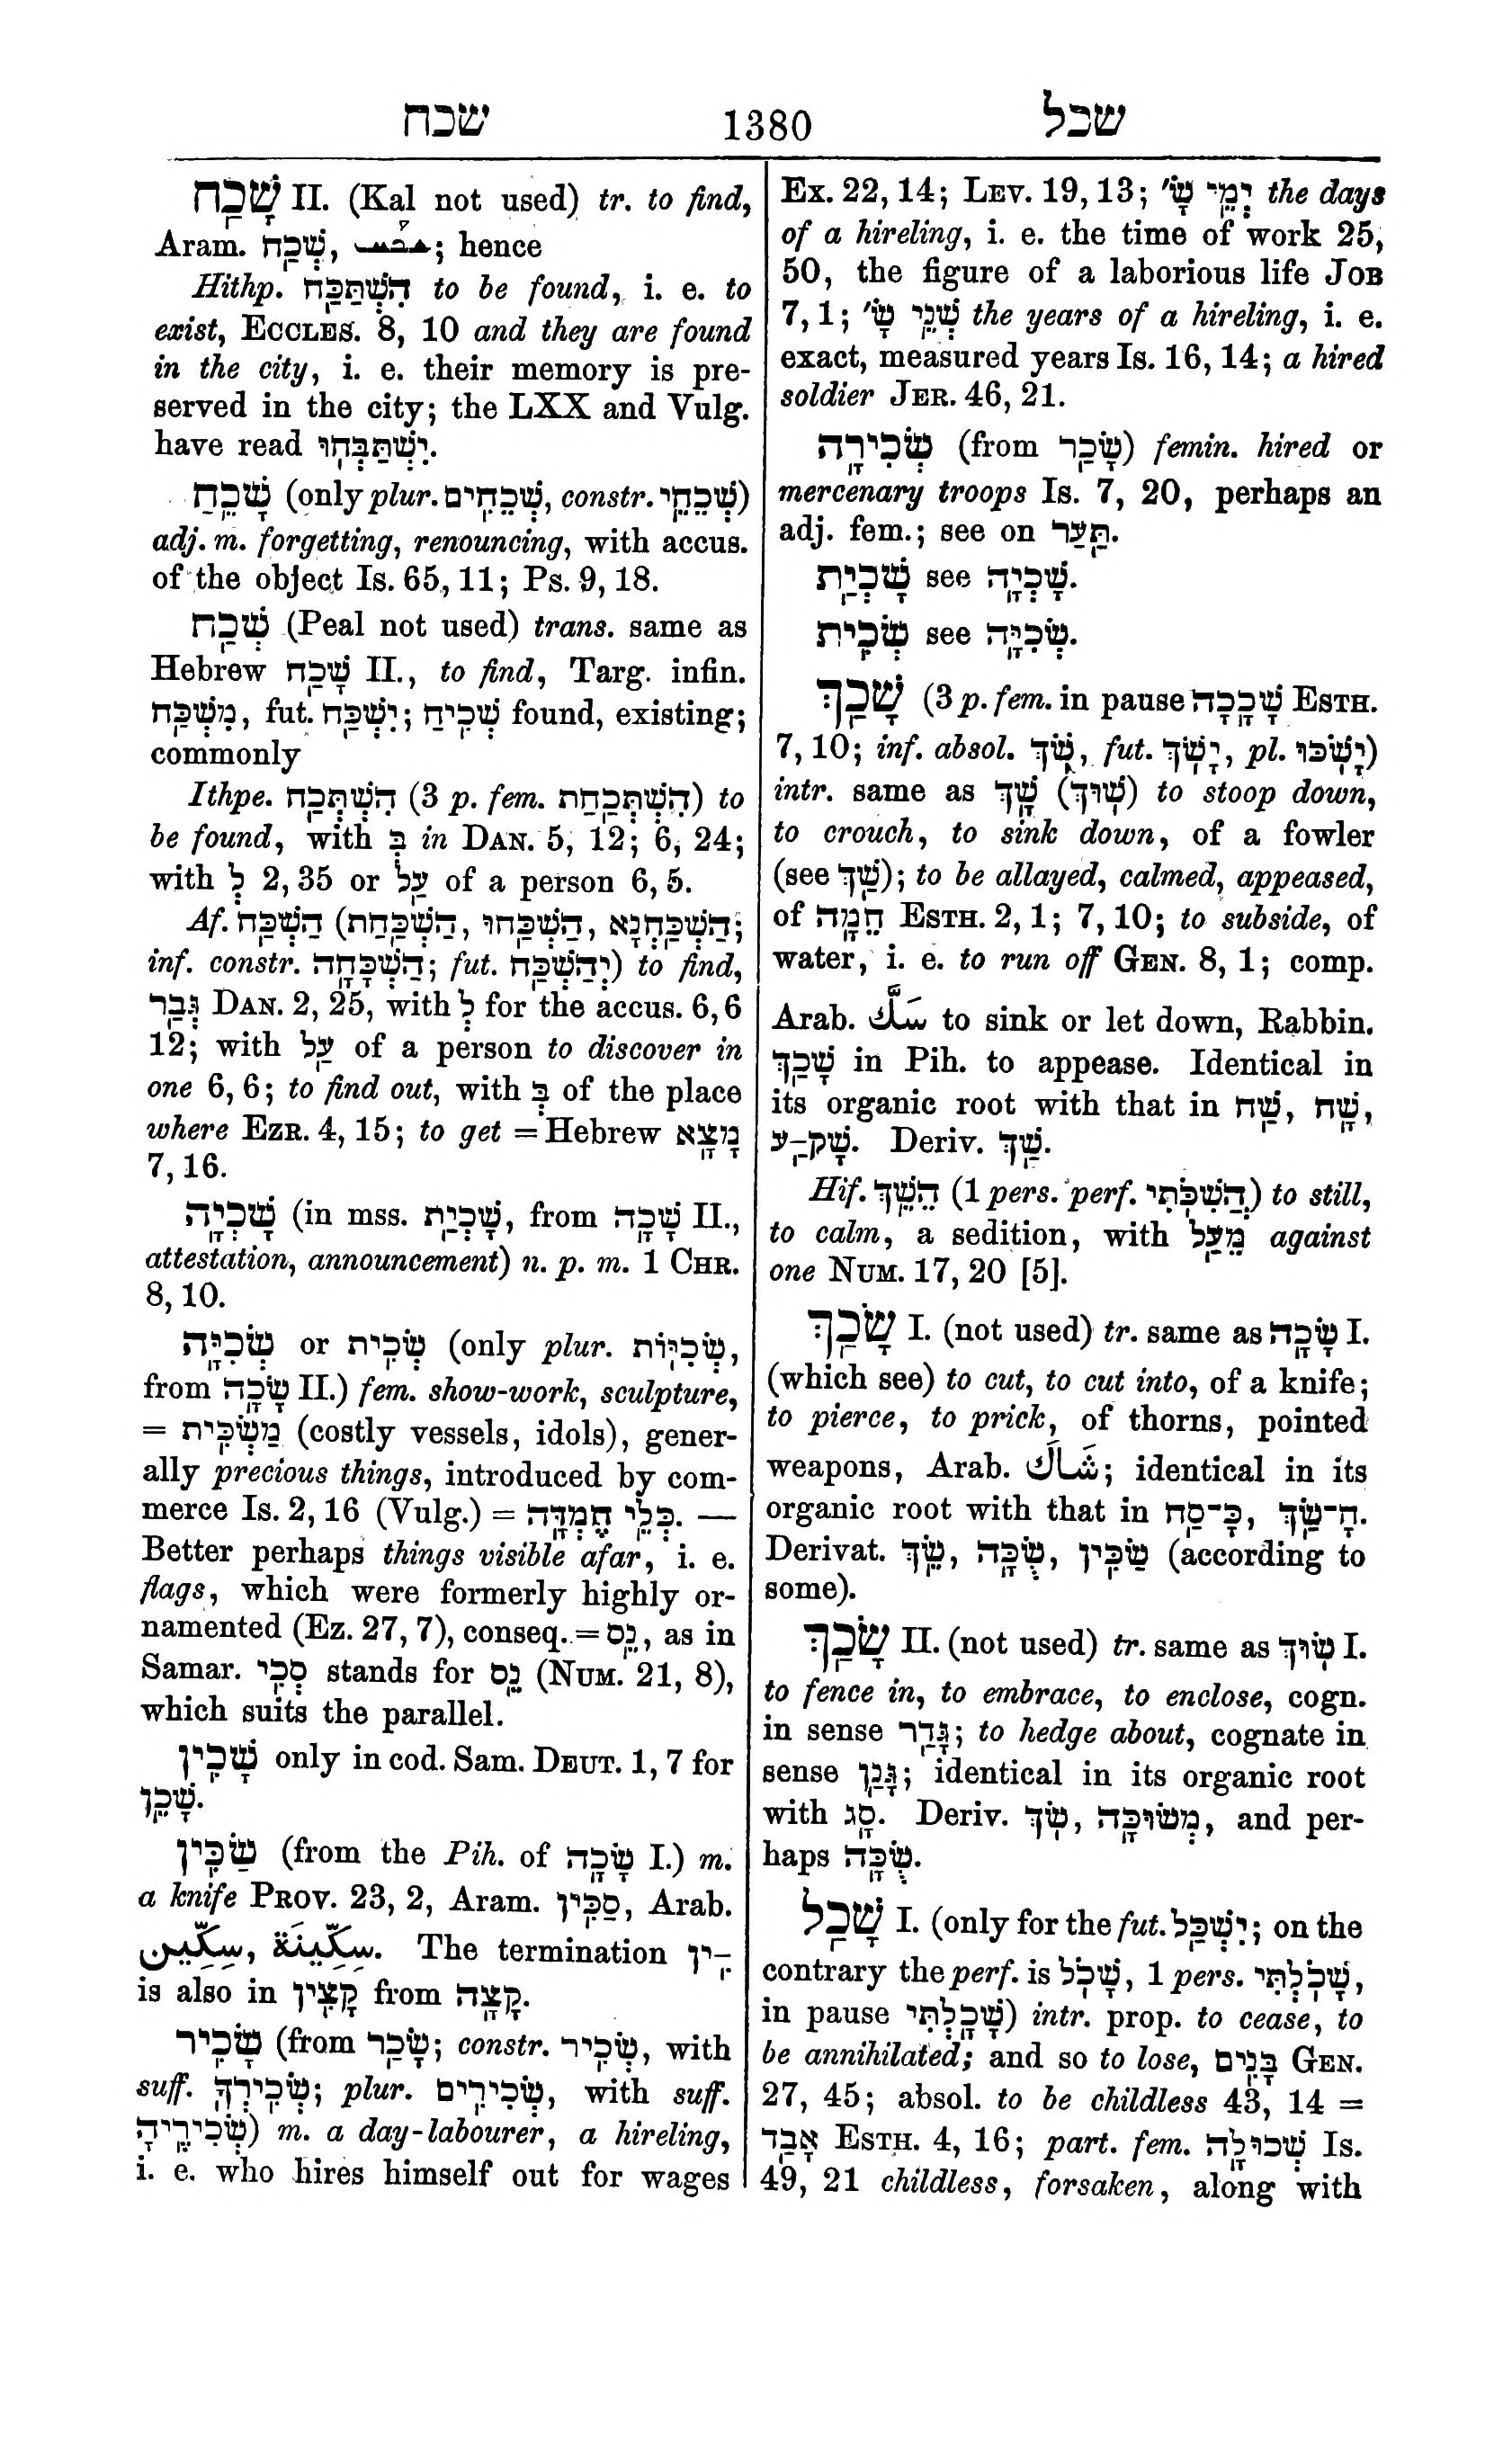 שכח 1380 שכל
שָׁכַח II. (Kal not used) tr. to find,
Aram. שְׁכַח, ; hence
Hithp. הִשְׁתַּכַּח to be found, i. e. to
exist, Eccles. 8, 10 and they are found
in the city, i. e. their memory is pre-
served in the city; the LXX and Vulg.
have read יִשְׁתַּבְּחוּ.
שָׁכֵחַ (only plur. שְׁכֵחִים, constr. שְׁכֵחֵי)
adj. m. forgetting, renouncing, with accus.
of the object Is. 65, 11; Ps. 9, 18.
שְׁכַח (Peal not used) trans. same as
Hebrew שָׁכַח II., to find, Targ. infin.
מִשְׁכַּח, fut. יִשְׁכַּח; שְׁכִיחַ found, existing;
commonly
Ithpe. הִשְׁתְּכַח (3 p. fem. הִשְׁתְּכַחַת) to
be found, with בְּ in Dan. 5, 12; 6, 24;
with לְ 2, 35 or עַל of a person 6, 5.
Af. הַשְׁכַּח (הַשְׁכַּחַת, הַשְׁכַּחוּ, הַשְׁכַּחְנָא;
inf. constr. הַשְׁכָּחָה; fut. יְהַשְׁכַּח) to find,
גְּבַר Dan. 2, 25, with לְ for the accus. 6, 6
12; with עַל of a person to discover in
one 6, 6; to find out, with בְּ of the place
where Ezr. 4, 15; to get = Hebrew מָצָא
7, 16.
שָׁכְיָה (in mss. שָׁכְיַת, from שָׁכָה II.,
attestation, announcement) n. p. m. 1 Chr.
8, 10.
שְׂכִיָּה or שְׂכִית (only plur. שְׂכִיּוֹת,
from שָׂכָה II.) fem. show-work, sculpture,
= מַשְׂכִּית (costly vessels, idols), gener-
ally precious things, introduced by com-
merce Is. 2, 16 (Vulg.) = כְּלֵי חֶמְדָּה. —
Better perhaps things visible afar, i. e.
flags, which were formerly highly or-
namented (Ez. 27, 7), conseq. = נֵס, as in
Samar. סְכִי stands for נֵס (Num. 21, 8),
which suits the parallel.
שָׁכִין only in cod. Sam. Deut. 1, 7 for
שָׁכֵן.
שַׂכִּין (from the Pih. of שָׂכָה I.) m.
a knife Prov. 23, 2, Aram. סַכִּין, Arab.
سِكِّين, سِكِّينَة. The termination ־ִין
is also in קָצִין from קָצָה.
שָׂכִיר (from שָׂכַר; constr. שְׂכִיר, with
suff. שְׂכִירְךָ; plur. שְׂכִירִים, with suff.
שְׂכִירֶיהָ) m. a day-labourer, a hireling,
i. e. who hires himself out for wages
Ex. 22, 14; Lev. 19, 13; יְמֵי שָׂ' the days
of a hireling, i. e. the time of work 25,
50, the figure of a laborious life Job
7, 1; שְׁנֵי שָׂ' the years of a hireling, i. e.
exact, measured years Is. 16, 14; a hired
soldier Jer. 46, 21.
שְׂכִירָה (from שָׂכַר) femin. hired or
mercenary troops Is. 7, 20, perhaps an
adj. fem.; see on תַּעַר.
שָׁכְיַת see שָׁכְיָה.
שְׂכִית see שְׂכִיָּה.
שָׁכַךְ (3 p. fem. in pause שָׁכָכָה Esth.
7, 10; inf. absol. שֹׁךְ, fut. יָשֹׁךְ, pl. יָשֹׁכּוּ)
intr. same as שָׁךְ (שׁוּךְ) to stoop down,
to crouch, to sink down, of a fowler
(see שַׁךְ); to be allayed, calmed, appeased,
of חֵמָה Esth. 2, 1; 7, 10; to subside, of
water, i. e. to run off Gen. 8, 1; comp.
Arab. سَكَّ to sink or let down, Rabbin.
שָׁכַךְ in Pih. to appease. Identical in
its organic root with that in שַׁח, שָׁח,
שָׁק־ַע. Deriv. שַׁךְ.
Hif. הֵשֵׁךְ (1 pers. perf. הֲשִׁכֹּתִי) to still,
to calm, a sedition, with מֵעַל against
one Num. 17, 20 [5].
שָׂכַךְ I. (not used) tr. same as שָׂכָה I.
(which see) to cut, to cut into, of a knife;
to pierce, to prick, of thorns, pointed
weapons, Arab. شَاكَ; identical in its
organic root with that in כָּ־סַח, חָ־שַׂךְ.
Derivat. שֵׂךְ, שֻׂכָּה, שַׂכִּין (according to
some).
שָׂכַךְ II. (not used) tr. same as שׂוּךְ I.
to fence in, to embrace, to enclose, cogn.
in sense גָּדַר; to hedge about, cognate in
sense גָּנַן; identical in its organic root
with סָג. Deriv. שֹׂךְ, מְשׂוּכָּה, and per-
haps שֻׂכָּה.
שָׁכַל I. (only for the fut. יִשְׁכַּל; on the
contrary the perf. is שָׁכֹל, 1 pers. שָׁכֹלְתִּי,
in pause שָׁכָלְתִּי) intr. prop. to cease, to
be annihilated; and so to lose, בָּנִים Gen.
27, 45; absol. to be childless 43, 14 =
אָבַד Esth. 4, 16; part. fem. שְׁכוּלָה Is.
49, 21 childless, forsaken, along with